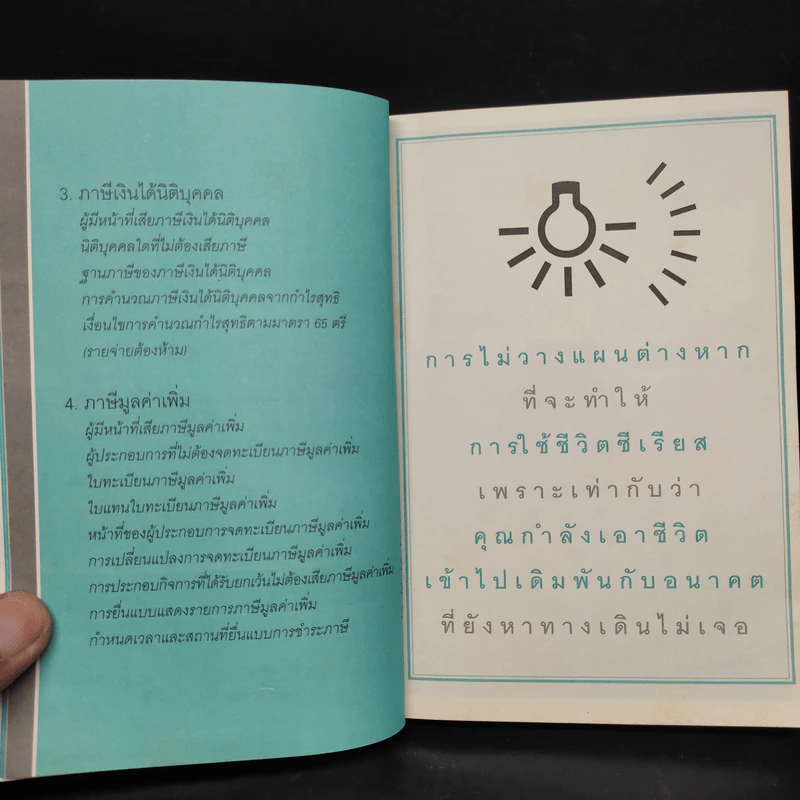 3. ภาษีเงินได้นิติบุคคล
ผู้มีหน้าที่เสียภาษีเงินได้นิติบุคคล
นิติบุคคลใดที่ไม่ต้องเสียภาษี
ฐานภาษีของภาษีเงินได้นิติบุคคล
การคำนวณภาษีเงินได้นิติบุคคลจากกำไรสุทธิ
เงื่อนไขการคำนวณกำไรสุทธิตามมาตรา 65 ตรี
(รายจ่ายต้องห้าม)
4. ภาษีมูลค่าเพิ่ม
ผู้มีหน้าที่เสียภาษีมูลค่าเพิ่ม
ผู้ประกอบการที่ไม่ต้องจดทะเบียนภาษีมูลค่าเพิ่ม
ใบทะเบียนภาษีมูลค่าเพิ่ม
ใบแทนใบทะเบียนภาษีมูลค่าเพิ่ม
หน้าที่ของผู้ประกอบการจดทะเบียนภาษีมูลค่าเพิ่ม
การเปลี่ยนแปลงการจดทะเบียนภาษีมูลค่าเพิ่ม
การประกอบกิจการที่ได้รับยกเว้นไม่ต้องเสียภาษีมูลค่าเพิ่ม
การยื่นแบบแสดงรายการภาษีมูลค่าเพิ่ม
กำหนดเวลาและสถานที่ยื่นแบบการชำระภาษี
การไม่วางแผนต่างหาก
ที่จะทำให้
การใช้ชีวิตซีเรียส
เพราะเท่ากับว่า
คุณกำลังเอาชีวิต
เข้าไปเดิมพันกับอนาคต
ที่ยังหาทางเดินไม่เจอ